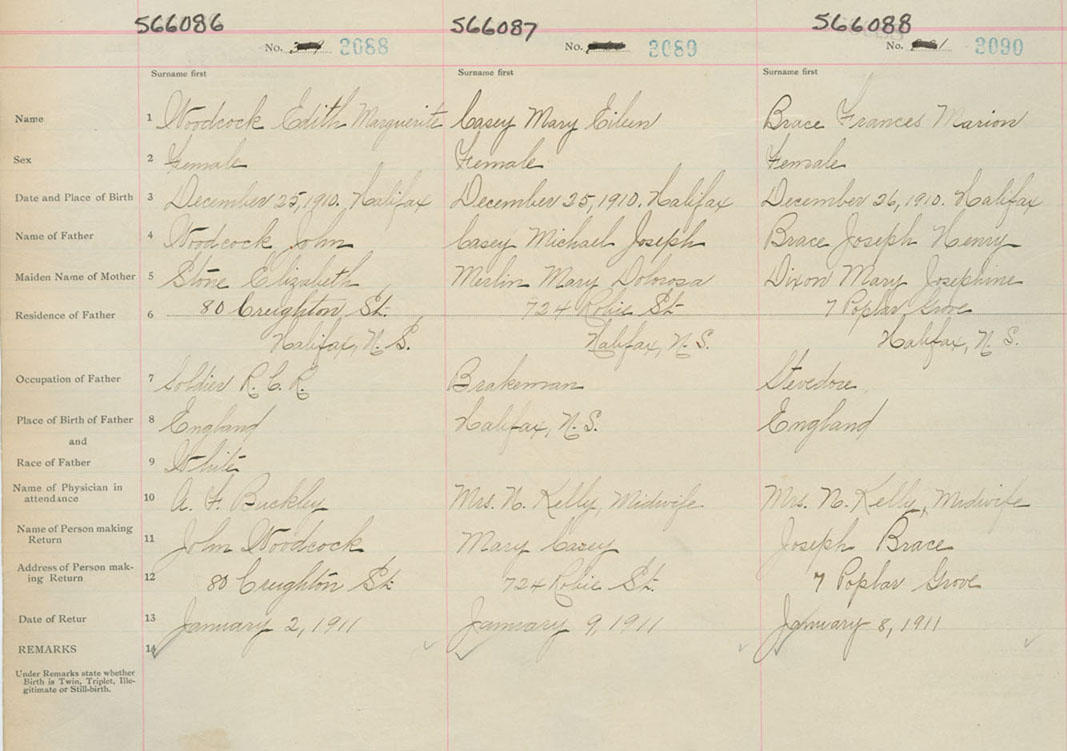 566086 566087 566088
No. 2088 No. 2089 No. 2090
Surname first Surname first Surname first
Name 1 Woodcock Edith Marguerite Casey Mary Eileen Brace Frances Marion
Sex 2 Female Female Female
Date and Place of Birth 3 December 25, 1910. Halifax December 25, 1910. Halifax December 26, 1910. Halifax
Name of Father 4 Woodcock John Casey Michael Joseph Brace Joseph Henry
Maiden Name of Mother 5 Stone Elizabeth Merlin Mary Dolorosa Dixon Mary Josephine
Residence of Father 6 80 Creighton St. 724 Robie St. 7 Poplar Grove
Halifax, N.S. Halifax, N.S. Halifax, N.S.
Occupation of Father 7 Soldier R.C.R. Brakeman Stevedore
Place of Birth of Father 8 England Halifax, N.S. England
and
Race of Father 9 White
Name of Physician in
attendance 10 A. F. Buckley Mrs. N. Kelly, Midwife Mrs. N. Kelly, Midwife
Name of Person making
Return 11 John Woodcock Mary Casey Joseph Brace
Address of Person mak-
ing Return 12 80 Creighton St. 724 Robie St. 7 Poplar Grove
Date of Retur 13 January 2, 1911 January 9, 1911 January 8, 1911
REMARKS 14
Under Remarks state whether
Birth is Twin, Triplet, Ille-
gitimate or Still-birth.